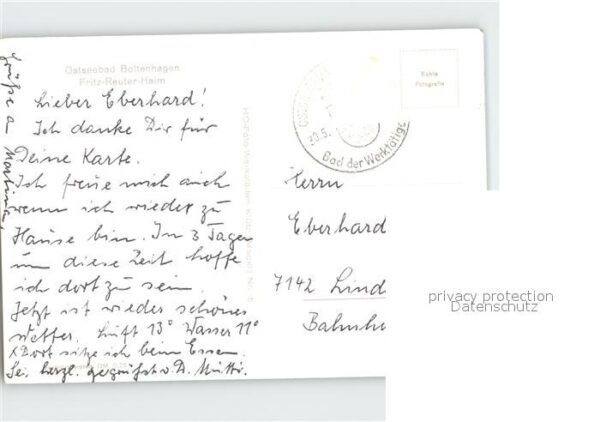 Ostseebad Boltenhagen
Fritz-Reuter-Heim
Echte
Fotografie
Grüße a. Martina.
Lieber Eberhard!
Ich danke Dir für
Deine Karte.
Ich freue mich auch
wenn ich wieder zu
Hause bin. In 3 Tagen
um diese Zeit hoffe
ich dort zu sein.
Jetzt ist wieder schönes
Wetter. Luft 13° Wasser 11°
X Dort sitze ich beim Essen.
Sei herzl. gegrüßt v. D. Mutti.
30.5.
Bad der Werktätige
Herrn
Eberhard
7142 Lind
Bahnho
privacy protection
Datenschutz